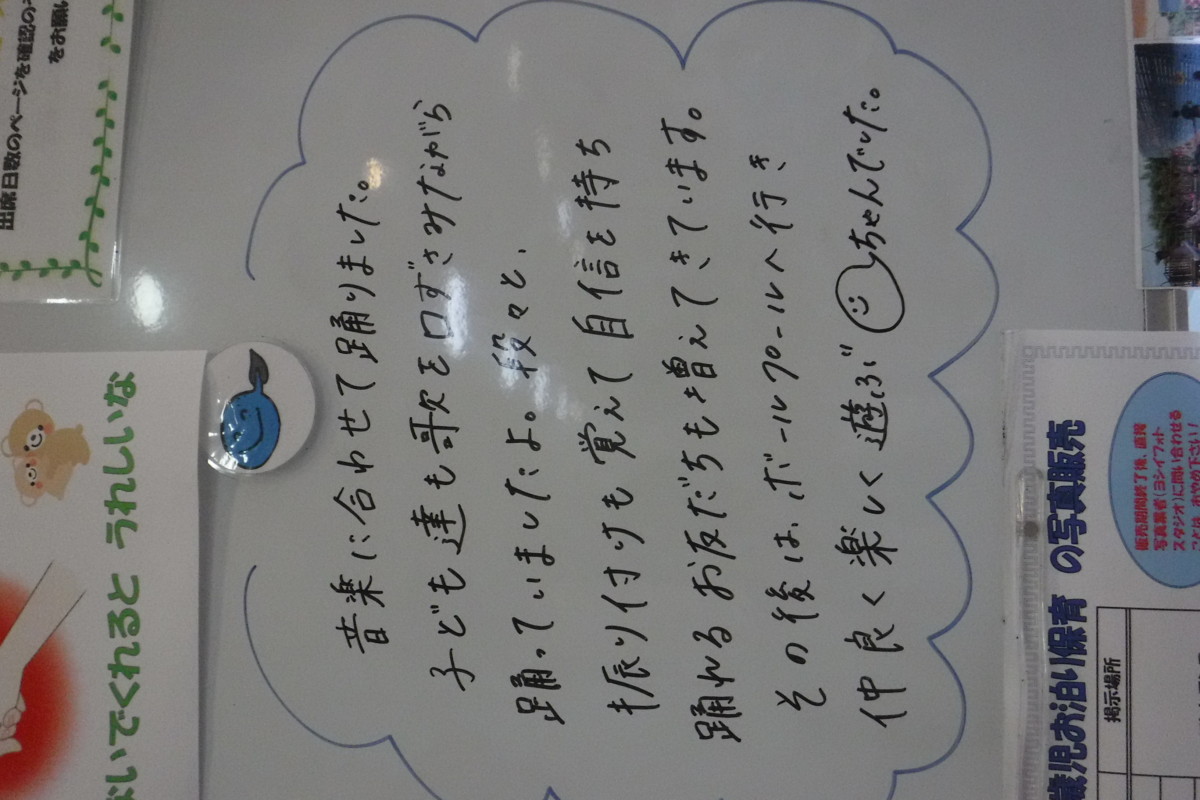 音楽に合わせて踊りました。
子ども達も歌を口ずさみながら
踊っていましたよ。段々と、
振り付けも覚えて自信を持ち
踊れるお友だちも増えてきています。
その後は、ボールプールへ行き
仲良く楽しく遊ぶ ちゃんでした。
出席日数のページを確認の
をお願い
ないでくれると うれしいな
歳児お泊り保育 の写真販売
掲示場所
販売期間終了後、直接
写真業者(ヨシイフォト
スタジオ)に問い合わせる